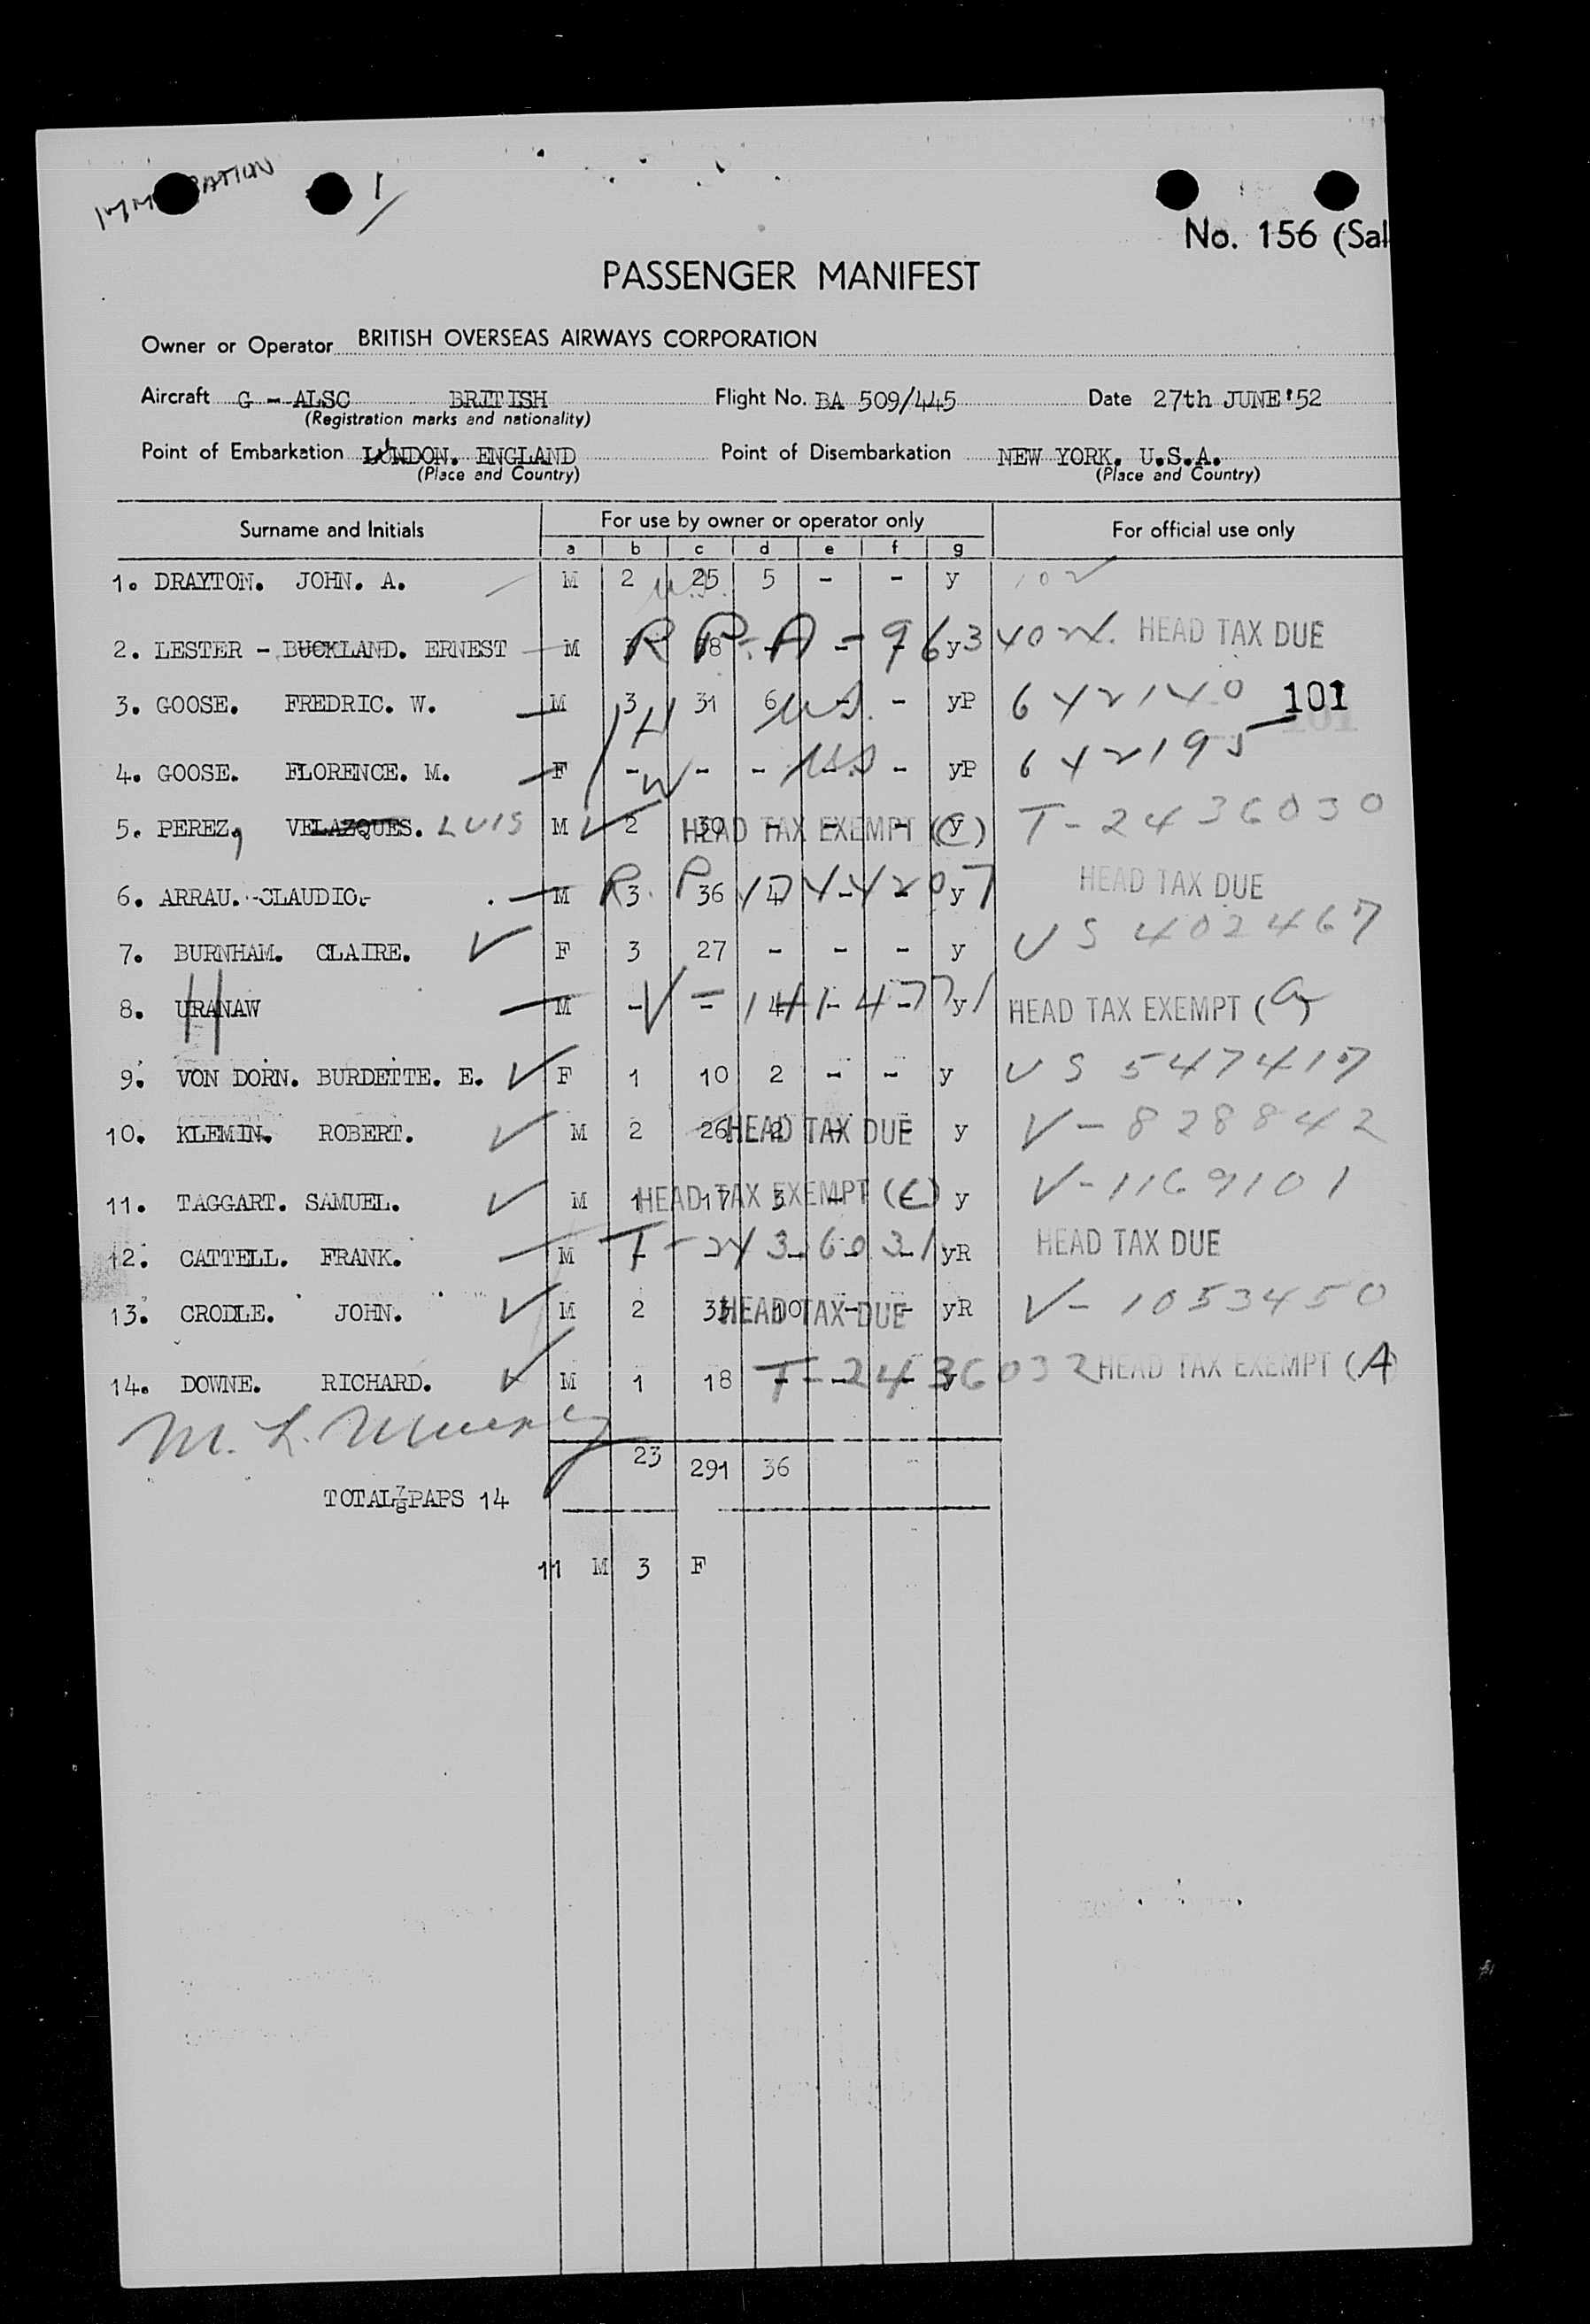 IMMIGRATION 1/
No. 156 (Sal
PASSENGER MANIFEST
Owner or Operator BRITISH OVERSEAS AIRWAYS CORPORATION
Aircraft G - ALSC BRITISH Flight No. BA 509/445 Date 27th JUNE '52
(Registration marks and nationality)
Point of Embarkation LONDON. ENGLAND Point of Disembarkation NEW YORK. U.S.A.
(Place and Country) (Place and Country)
Surname and Initials For use by owner or operator only For official use only
a b c d e f g
1. DRAYTON. JOHN. A. M 2 25 5 - - y
U.S.
2. LESTER - BUCKLAND. ERNEST M 18 - - - y HEAD TAX DUE
3. GOOSE. FREDRIC. W. M 3 31 6 - - yP 642140 101
H U.S.
4. GOOSE. FLORENCE. M. F - - - - - yP 642195
W U.S.
5. PEREZ, VELAZQUES. LUIS M 2 30 - - - y T-2436030
HEAD TAX EXEMPT (C)
6. ARRAU. -CLAUDIO- M 3 36 4 - - y HEAD TAX DUE
7. BURNHAM. CLAIRE. F 3 27 - - - y US 402467
8. URANAW M - - 4 - - y HEAD TAX EXEMPT (
V-1414771
9. VON DORN. BURDETTE. E. F 1 10 2 - - y US 547417
10. KLEMIN. ROBERT. M 2 26 2 - - y V-828842
HEAD TAX DUE
11. TAGGART. SAMUEL. M 1 17 3 - - y V-1169101
HEAD TAX EXEMPT (C)
12. CATTELL. FRANK. M - - - - - yR HEAD TAX DUE
T-2436031
13. CRODLE. JOHN. M 2 33 10 - - yR V-1053450
HEAD TAX DUE
14. DOWNE. RICHARD. M 1 18 - - - y HEAD TAX EXEMPT (A)
T-2436032
M. L.
23 291 36
TOTAL 7/8 PAPS 14
11 M 3 F